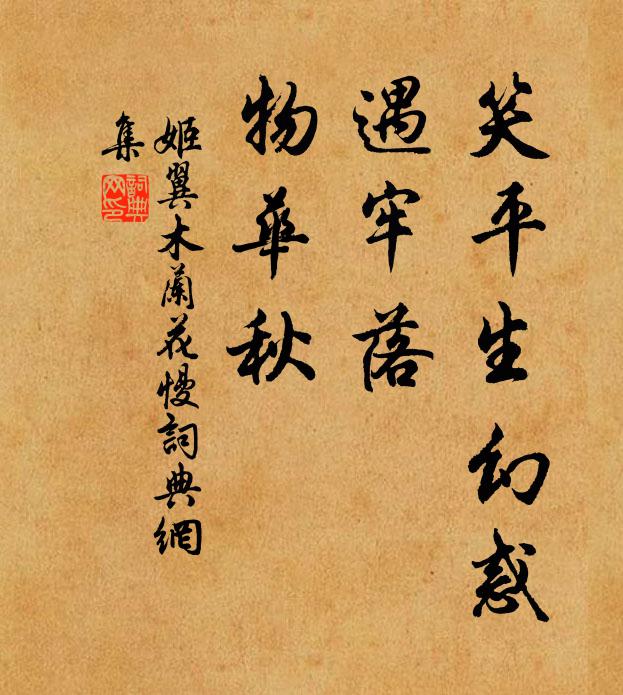 笑平生幻惑
遇牢落
物華秋
姬翼木蘭花慢詞典網
集
詞典網印